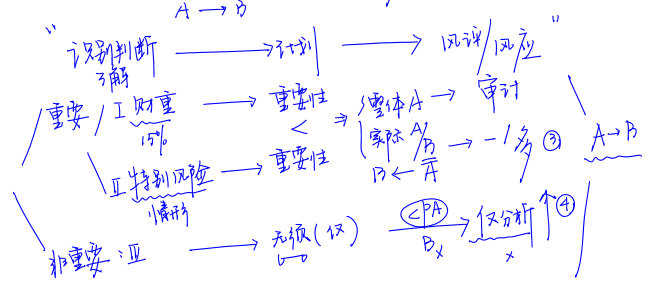 A → B
" 识别判断 → 计划 → 风评/风应 "
了解
重要 / I 财重 → 重要性 ⇒ 整体A → 审计
15% < 实际 A/B → -1多 ③ A→B
\ II 特别风险 → 重要性 B ← A̅
情形
非重要:III → 无须(仅) CPA → 仅分析 ↑ ④
Bx x